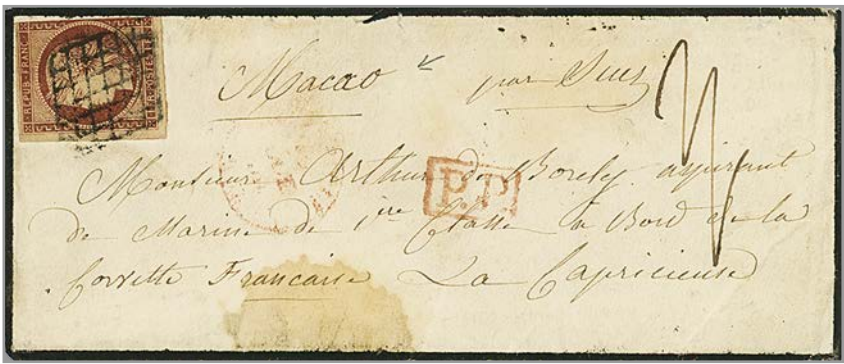 REPUB. FRANC.
POSTES
Macao par Suez
P.P.
Monsieur Arthur de Borely aspirant
de Marine de 1ère Classe à Bord de la
Corvette Francaise La Capricieuse